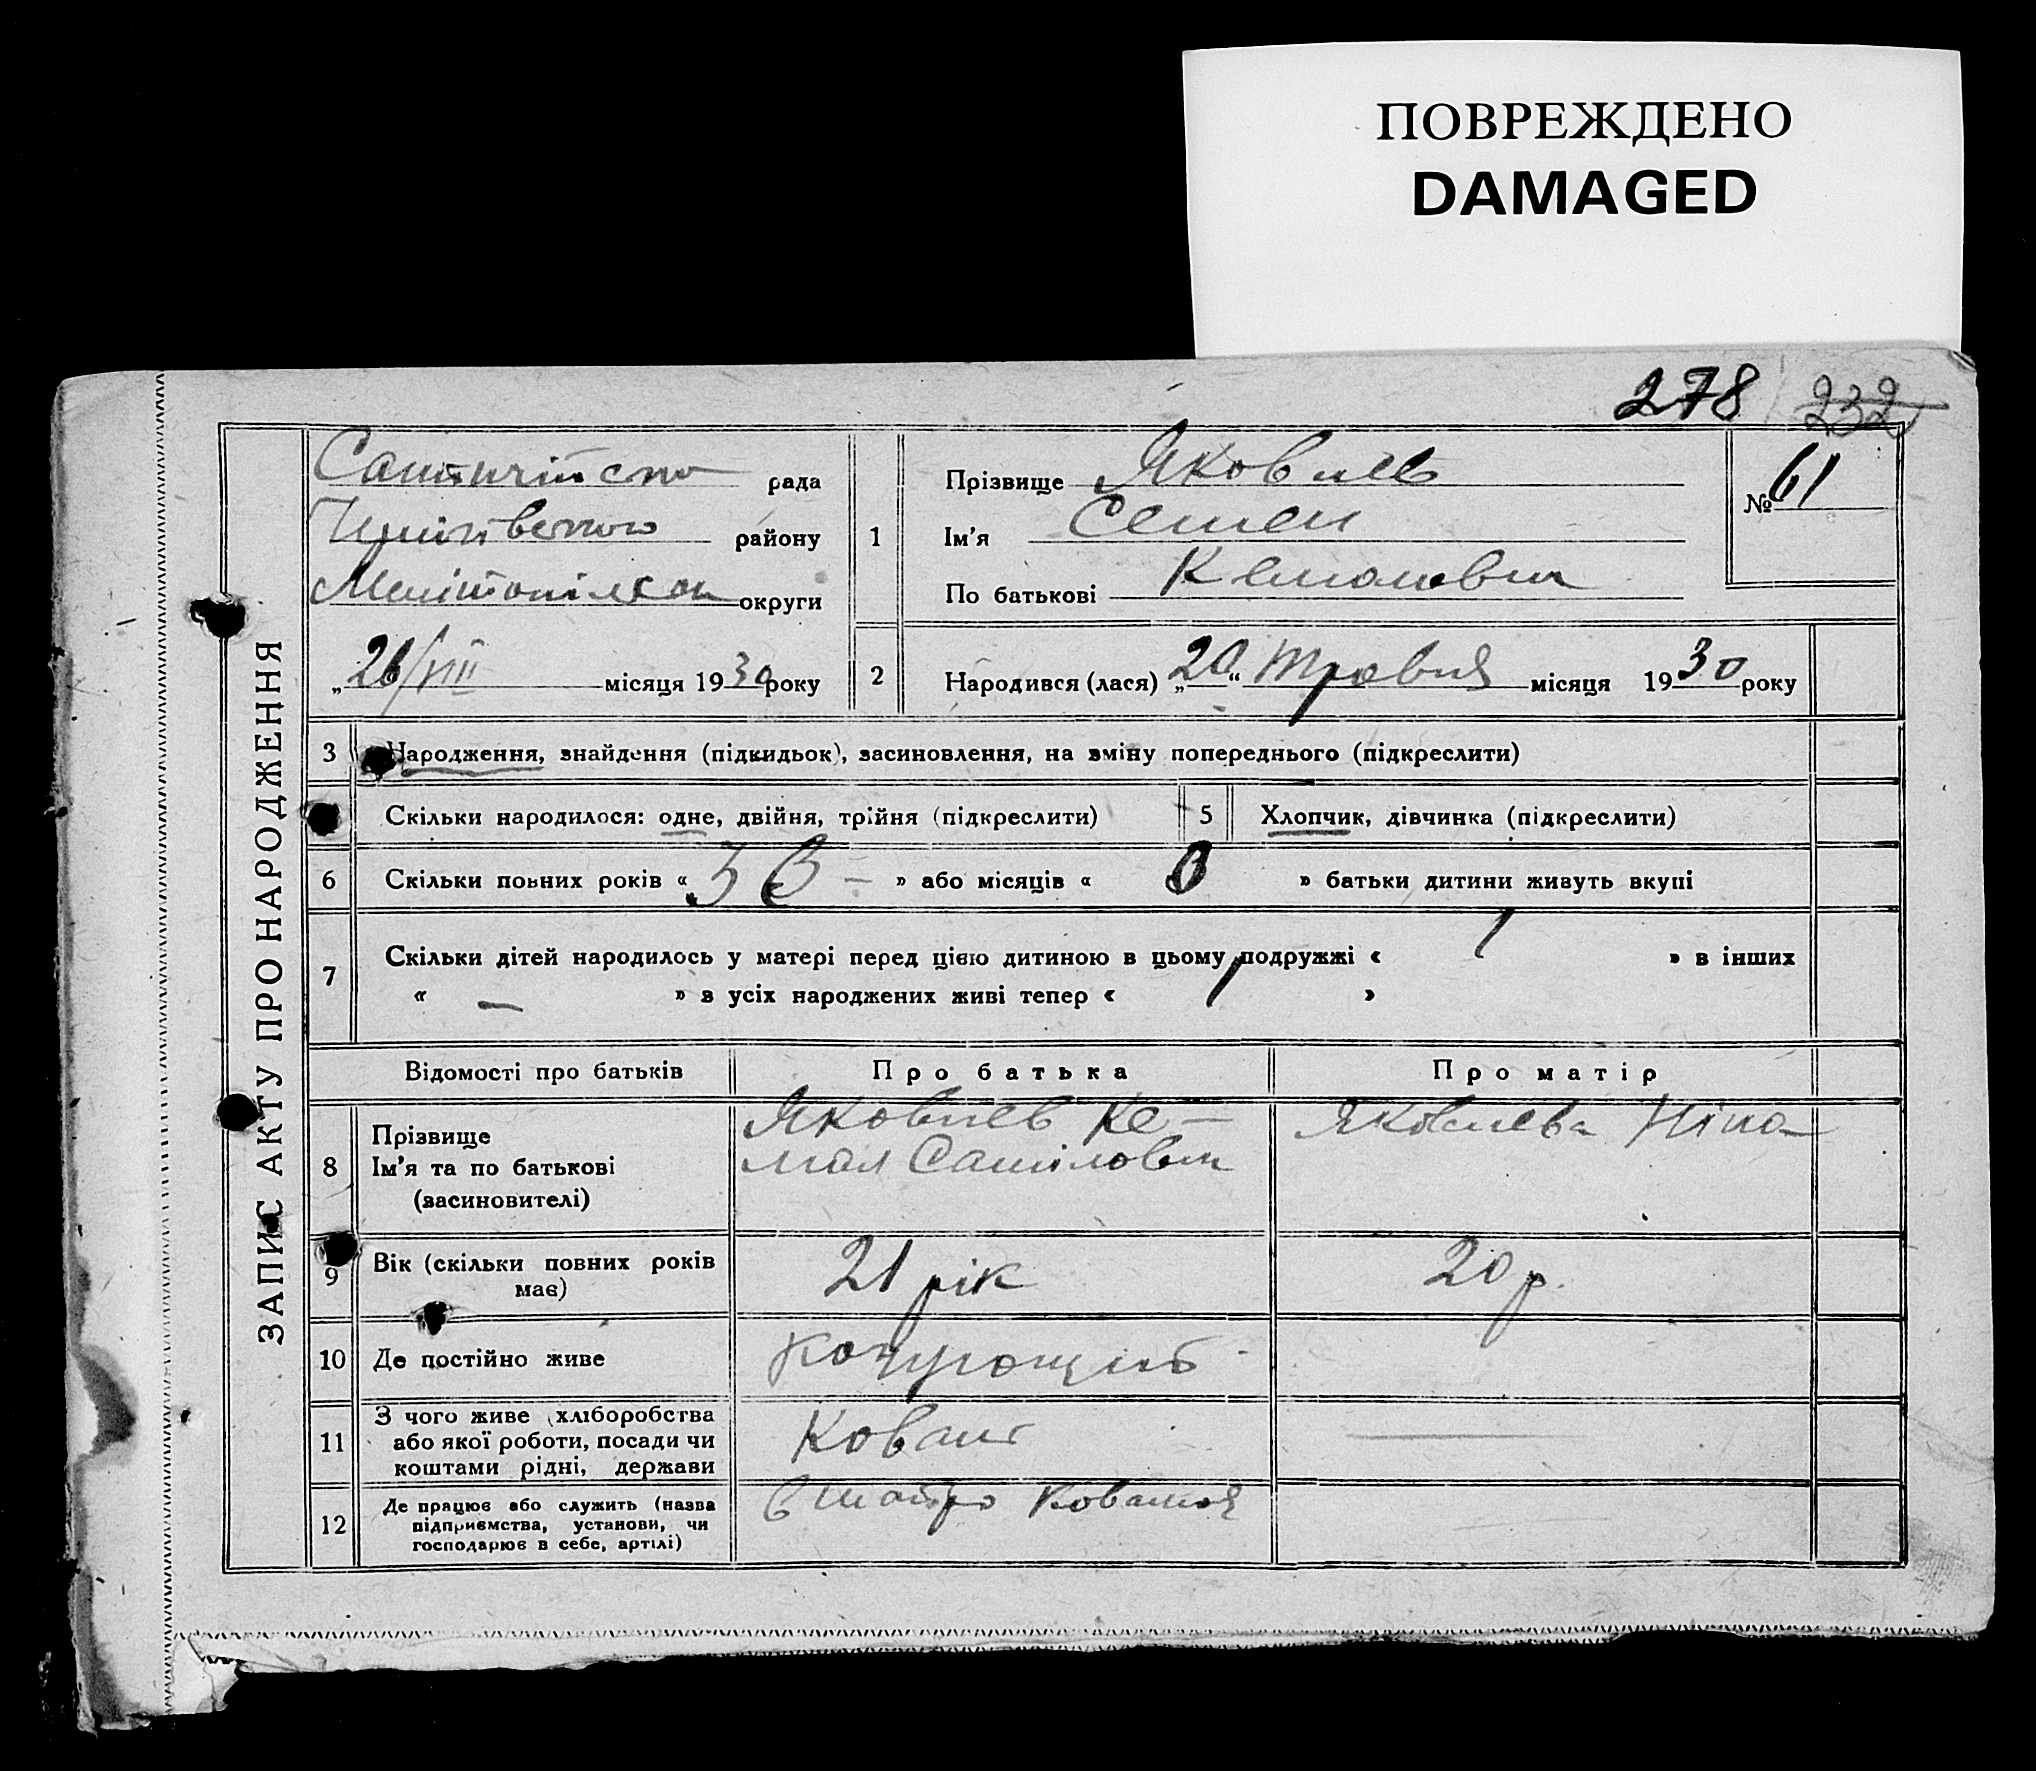 ПОВРЕЖДЕНО
DAMAGED
278 232
ЗАПИС АКТУ ПРО НАРОДЖЕННЯ
рада
району
округи
„26/VIII місяця 1930 року
1
Прізвище Яковлев
Ім'я Семен
По батькові Кемалович
№ 61
2
Народився (лася) „20“ Травня місяця 1930 року
3 Народження, знайдення (підкидьок), засиновлення, на зміну попереднього (підкреслити)
Скільки народилося: одне, двійня, трійня (підкреслити) 5 Хлопчик, дівчинка (підкреслити)
6 Скільки повних років « 3 » або місяців « » батьки дитини живуть вкупі
7 Скільки дітей народилось у матері перед цією дитиною в цьому подружжі « 1 » в інших
« — » з усіх народжених живі тепер « 1 »
Відомості про батьків Про батька Про матір
8 Прізвище
Ім'я та по батькові
(засиновителі)
Яковлев Ке-
мал
Яковлева Ніна
9 Вік (скільки повних років
має)
21 рік
20 р.
10 Де постійно живе
11 З чого живе (хліборобства
або якої роботи, посади чи
коштами рідні, держави
Коваль
12 Де працює або служить (назва
підприємства, установи, чи
господарює в себе, артілі)